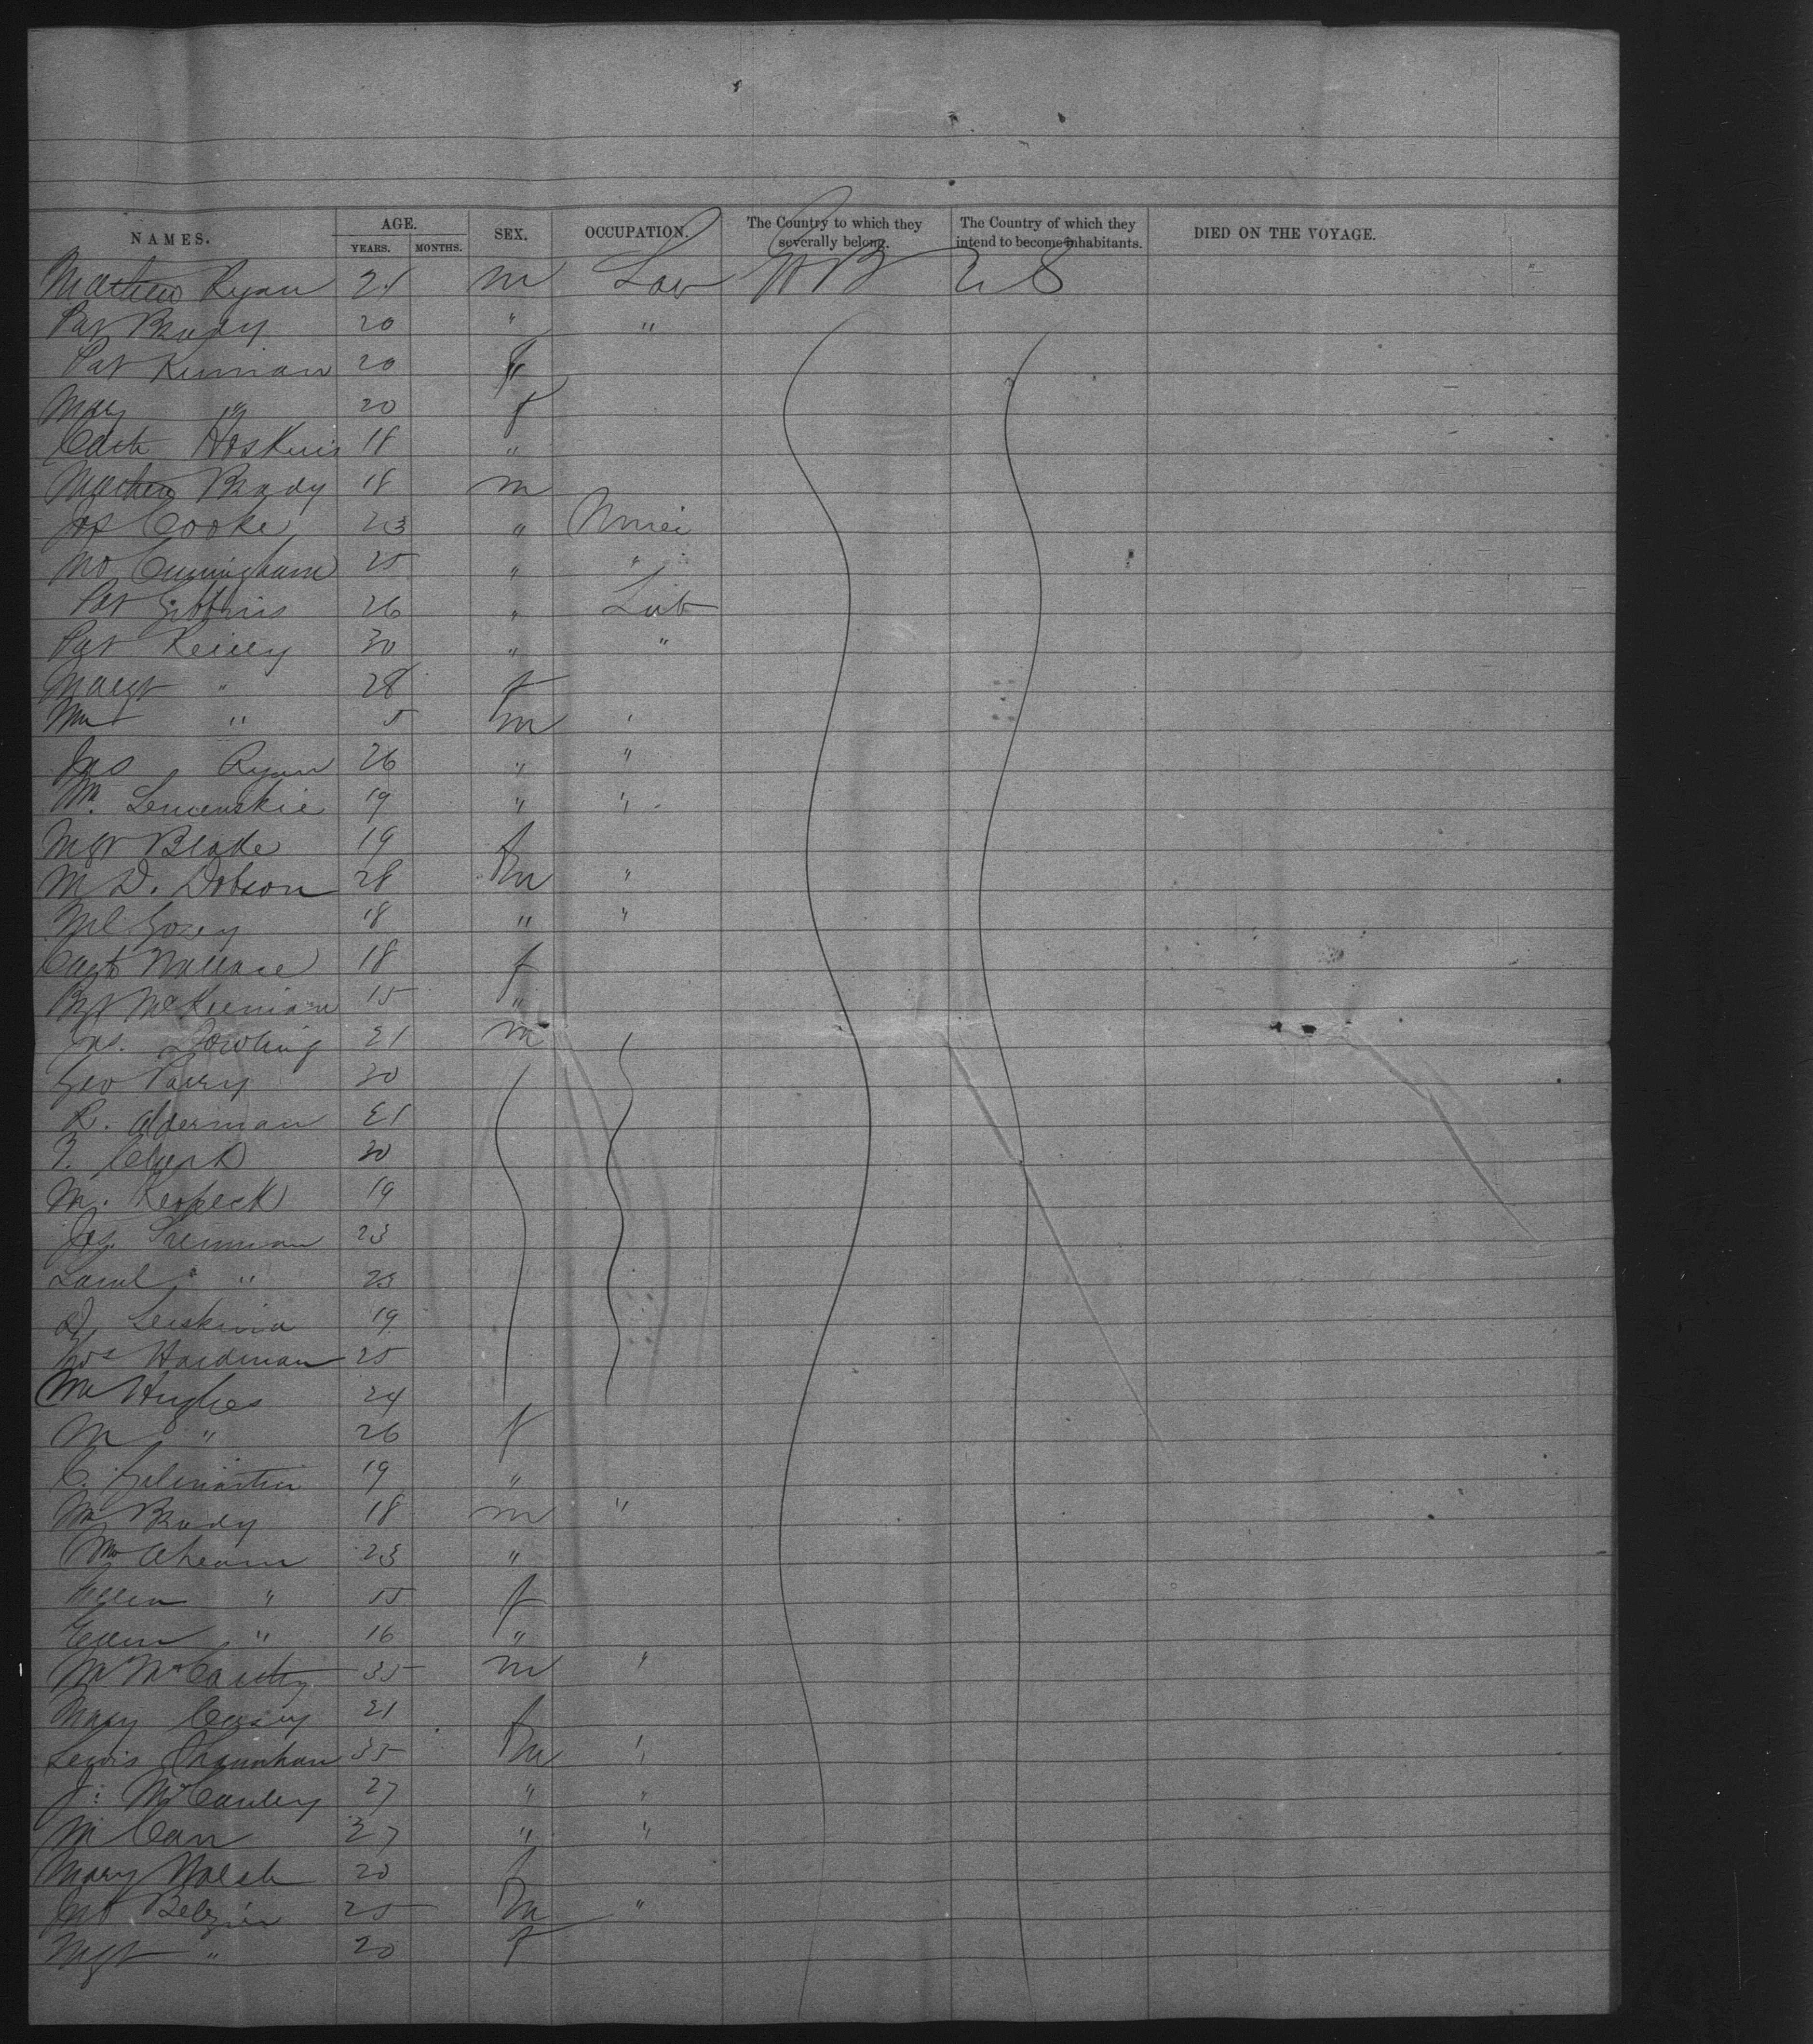 NAMES. AGE. YEARS. MONTHS. SEX. OCCUPATION. The Country to which they severally belong. The Country of which they intend to become inhabitants. DIED ON THE VOYAGE.
Mathew Ryan 21 m Lab GB US
Pat Brady 20 " "
Pat Kirnian 20 "
Mary " 20 f
Cath Hoskins 18 "
Mathew Brady 18 m
Jos Cooke 23 " Miner
Cunningham 25 " "
Pat Gibbins 26 " Lab
Pat Reilly 30 " "
Margt " 28 f
Wm " 5 m "
Jas Ryan 26 " "
19 " "
Mgt Blake 19 f
M D. Dobson 28 m "
18 " "
Cath Wallace 18 f
Bgt McKiernan 15 "
Jas. Dowling 21 m
Geo Parry 30
R. Alderman 21
T. Clark 30
M. 19
Jos. 23
Saml " " 23
19
Hardman 25
Wm Hughes 24
M " 26 f
C. Gilmartin 19 "
Brady 18 m "
Ahearn 23 "
Ellen " 15 f
Ellen " 16 "
McCarthy 35 m "
Mary Casey 21 f
Lewis 35 m "
J: McCauley 27 " "
M Carr 27 " "
Mary Walsh 20 f
Jno 25 m "
Mgt " 20 f